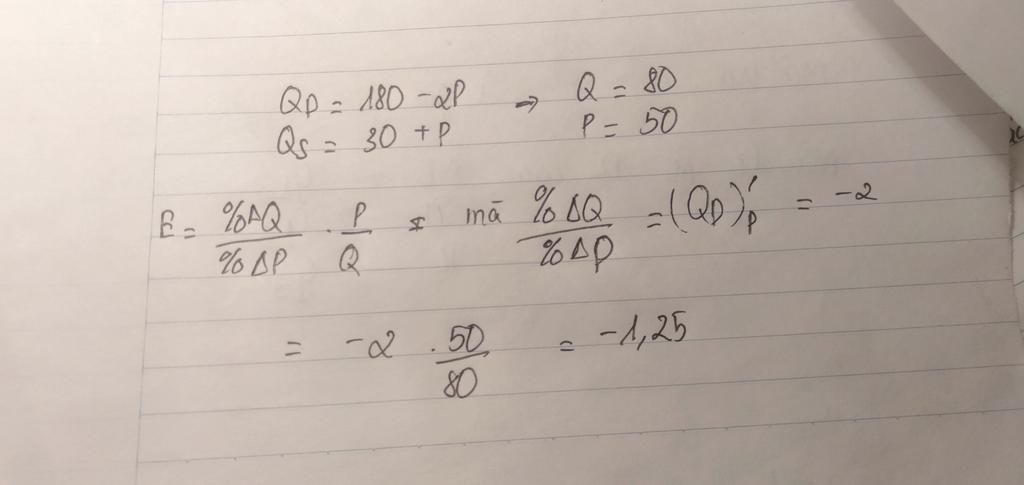 QD = 180 - 2P → Q = 80
QS = 30 + P P = 50
E = %ΔQ / %ΔP . P / Q mà %ΔQ / %ΔP = (QD)'P = -2
= -2 . 50 / 80 = -1,25